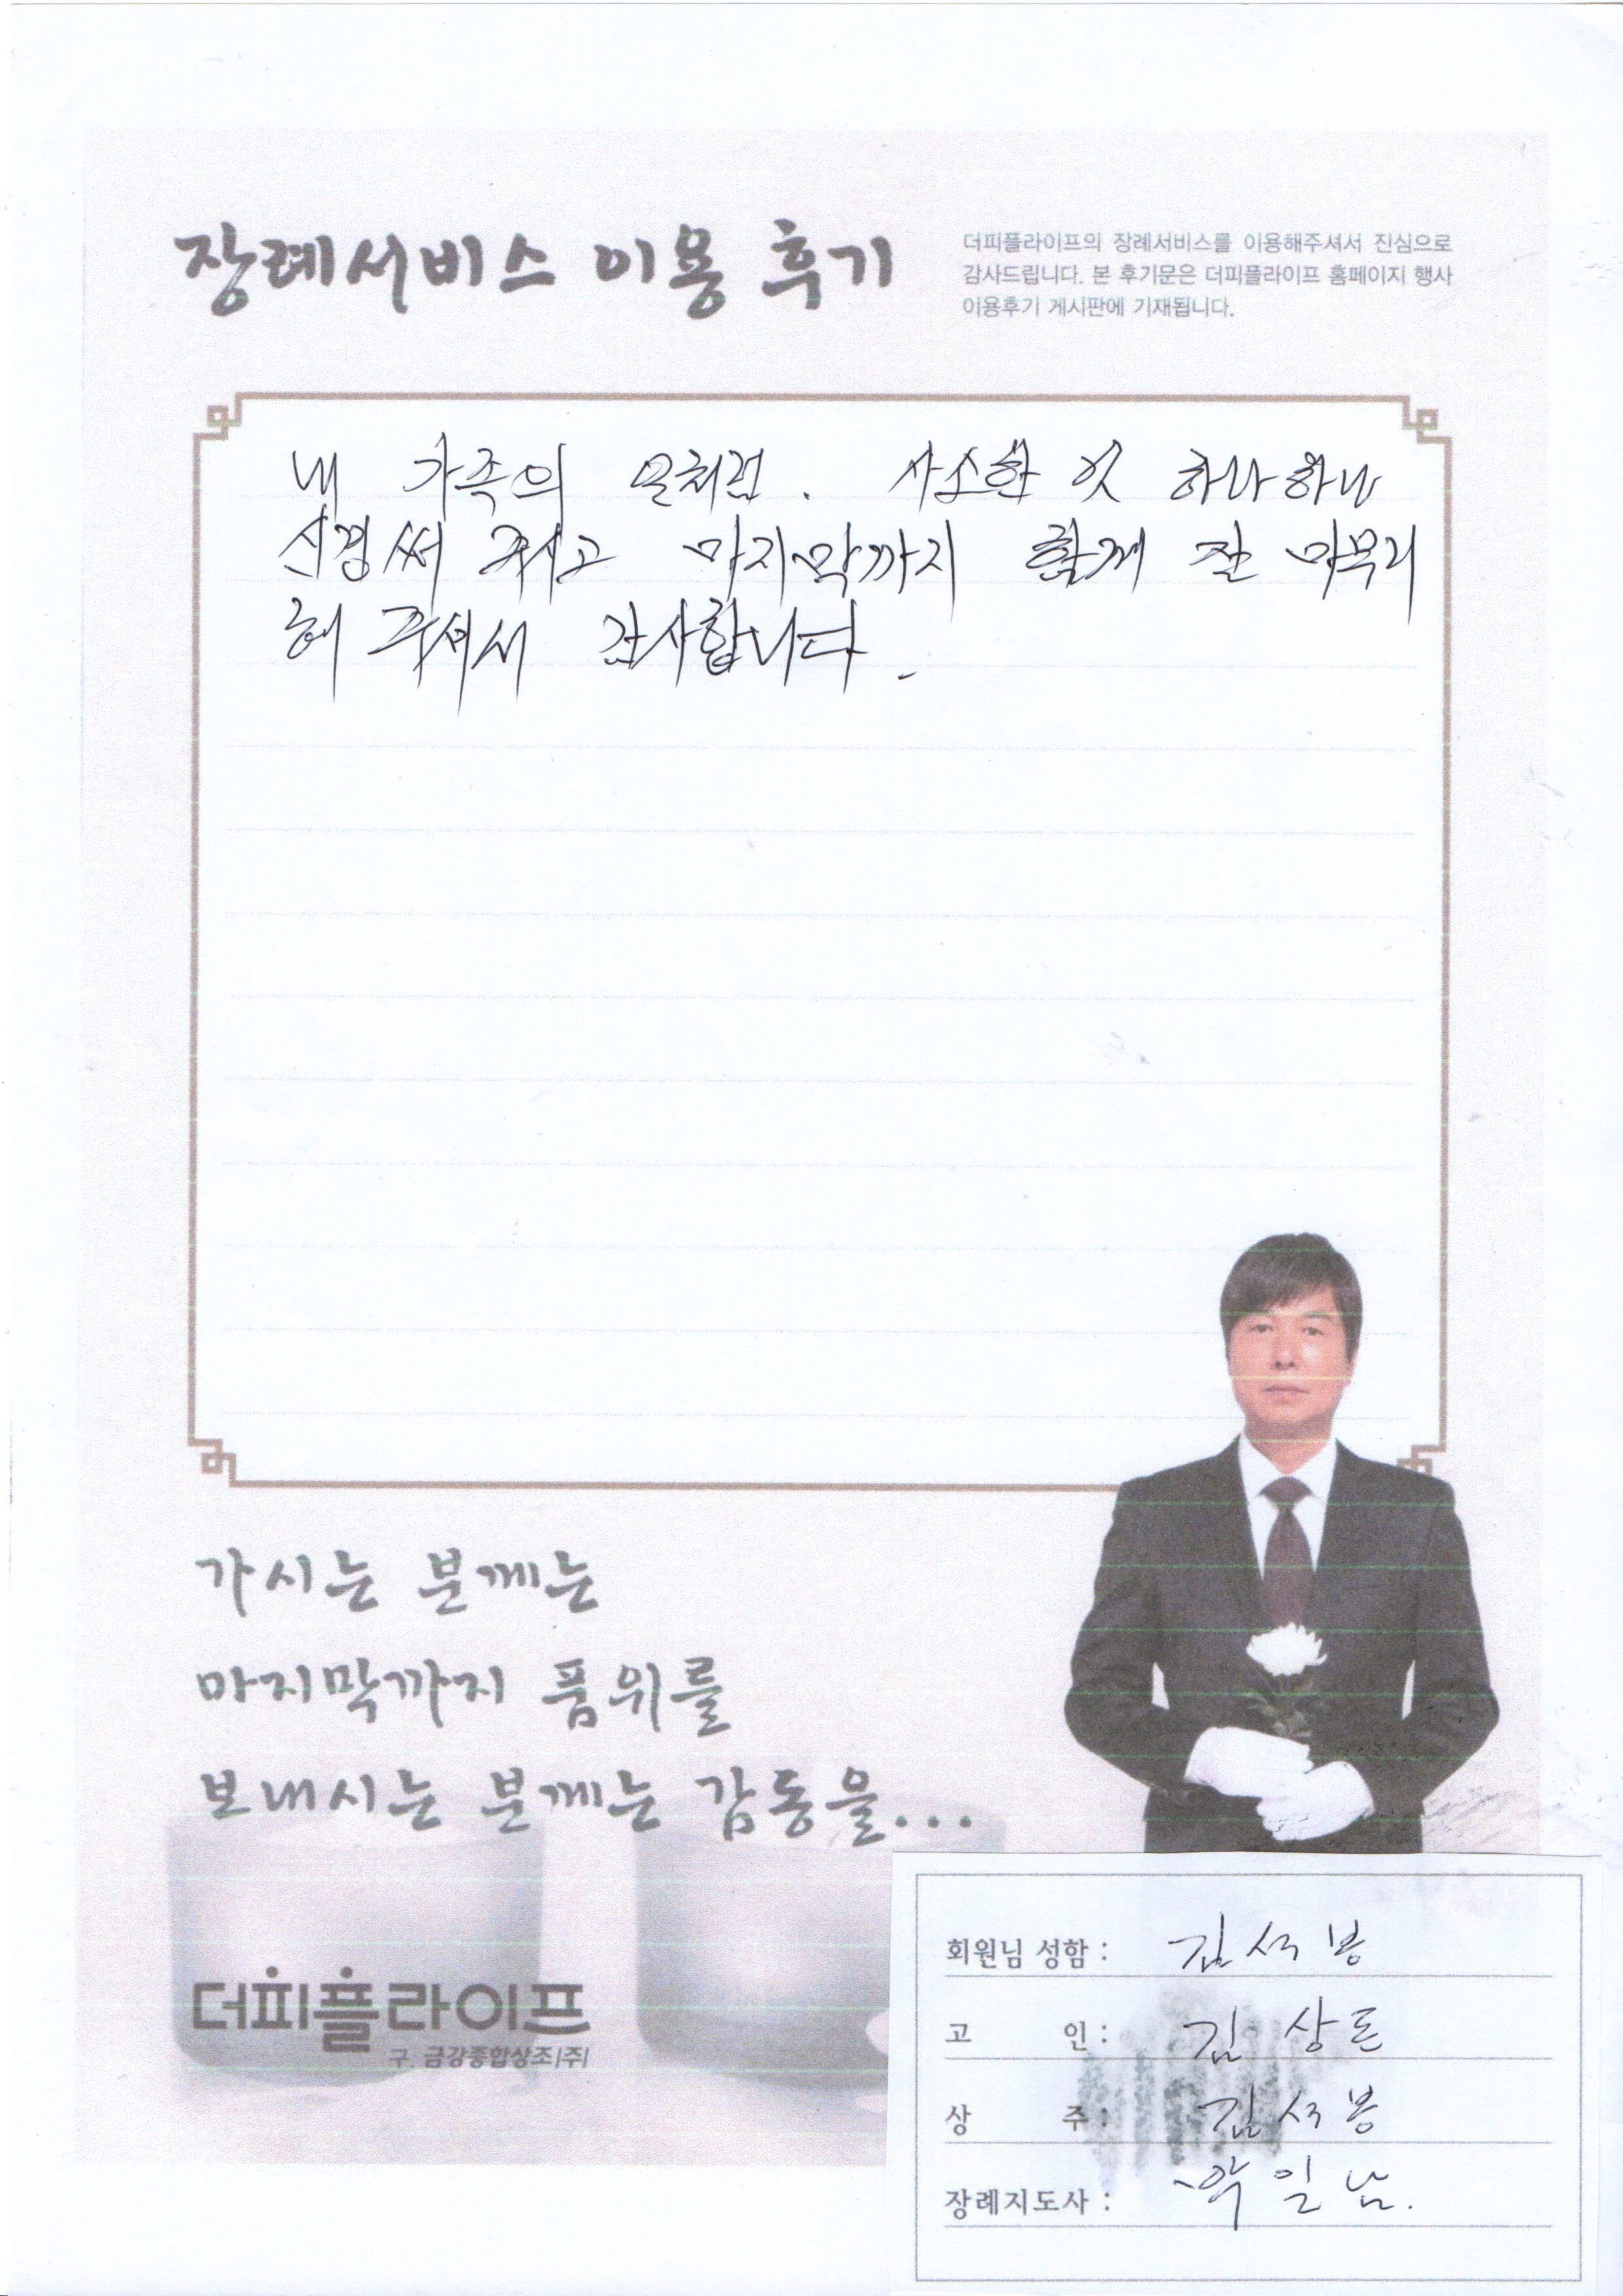 장례서비스 이용 후기
더피플라이프의 장례서비스를 이용해주셔서 진심으로
감사드립니다. 본 후기문은 더피플라이프 홈페이지 행사
이용후기 게시판에 기재됩니다.
내 가족의 일처럼. 사소한 것 하나하나
신경써 주시고 마지막까지 함께 잘 마무리
해 주셔서 감사합니다.
가시는 분께는
마지막까지 품위를
보내시는 분께는 감동을...
더피플라이프
구. 금강종합상조(주)
회원님 성함 : 김석봉
고 인 : 김상돈
상 주 : 김석봉
장례지도사 : 일남.